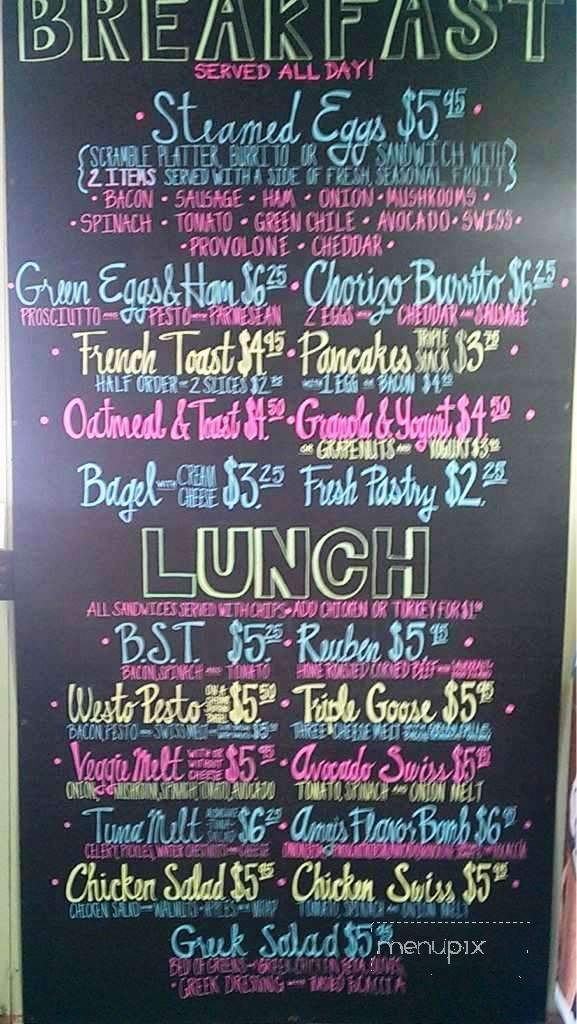 BREAKFAST
SERVED ALL DAY!
Steamed Eggs $5.95
{SCRAMBLE PLATTER, BURRITO OR SANDWICH WITH}
2 ITEMS SERVED WITH A SIDE OF FRESH, SEASONAL FRUIT
• BACON • SAUSAGE • HAM • ONION • MUSHROOMS •
• SPINACH • TOMATO • GREEN CHILE • AVOCADO • SWISS •
• PROVOLONE • CHEDDAR •
• Green Eggs & Ham $6.25 • Chorizo Burrito $6.25 •
PROSCIUTTO AND PESTO AND PARMESEAN 2 EGGS AND CHEDDAR AND SAUSAGE
• French Toast $4.95 • Pancakes TRIPLE STACK $3.75 •
HALF ORDER - 2 SLICES WITH 1 EGG OR BACON
• Oatmeal & Toast $4.50 • Granola & Yogurt $4.50 •
OR GRAPENUTS AND YOGURT
Bagel WITH CREAM CHEESE $3.25 Fresh Pastry $2.25
LUNCH
ALL SANDWICES SERVED WITH CHIPS • ADD CHICKEN OR TURKEY FOR
• B.S.T. $5.25 • Reuben $5.95 •
BACON, SPINACH AND TOMATO HOME ROASTED CORNED BEEF
• Westo Pesto $5.50 • Triple Goose $5.95 •
BACON, PESTO AND SWISS MELT THREE CHEESE MELT
• Veggie Melt WITH OR WITHOUT CHEESE $5.95 • Avocado Swiss $5.95 •
ONION, MUSHROOM, SPINACH, TOMATO, AVOCADO TOMATO, SPINACH AND ONION MELT
• Tuna Melt $6.25 • Flavor Bomb $6
CELERY, PICKLES, WATER CHESTNUTS AND CHEESE
• Chicken Salad $5.95 • Chicken Swiss $5.95 •
CHICKEN SALAD WALNUTS APPLES WRAP TOMATO, SPINACH AND ONION MELT
Greek Salad $5.95
BED OF GREENS
• GREEK DRESSING TOASTED FOCACCIA
menupix